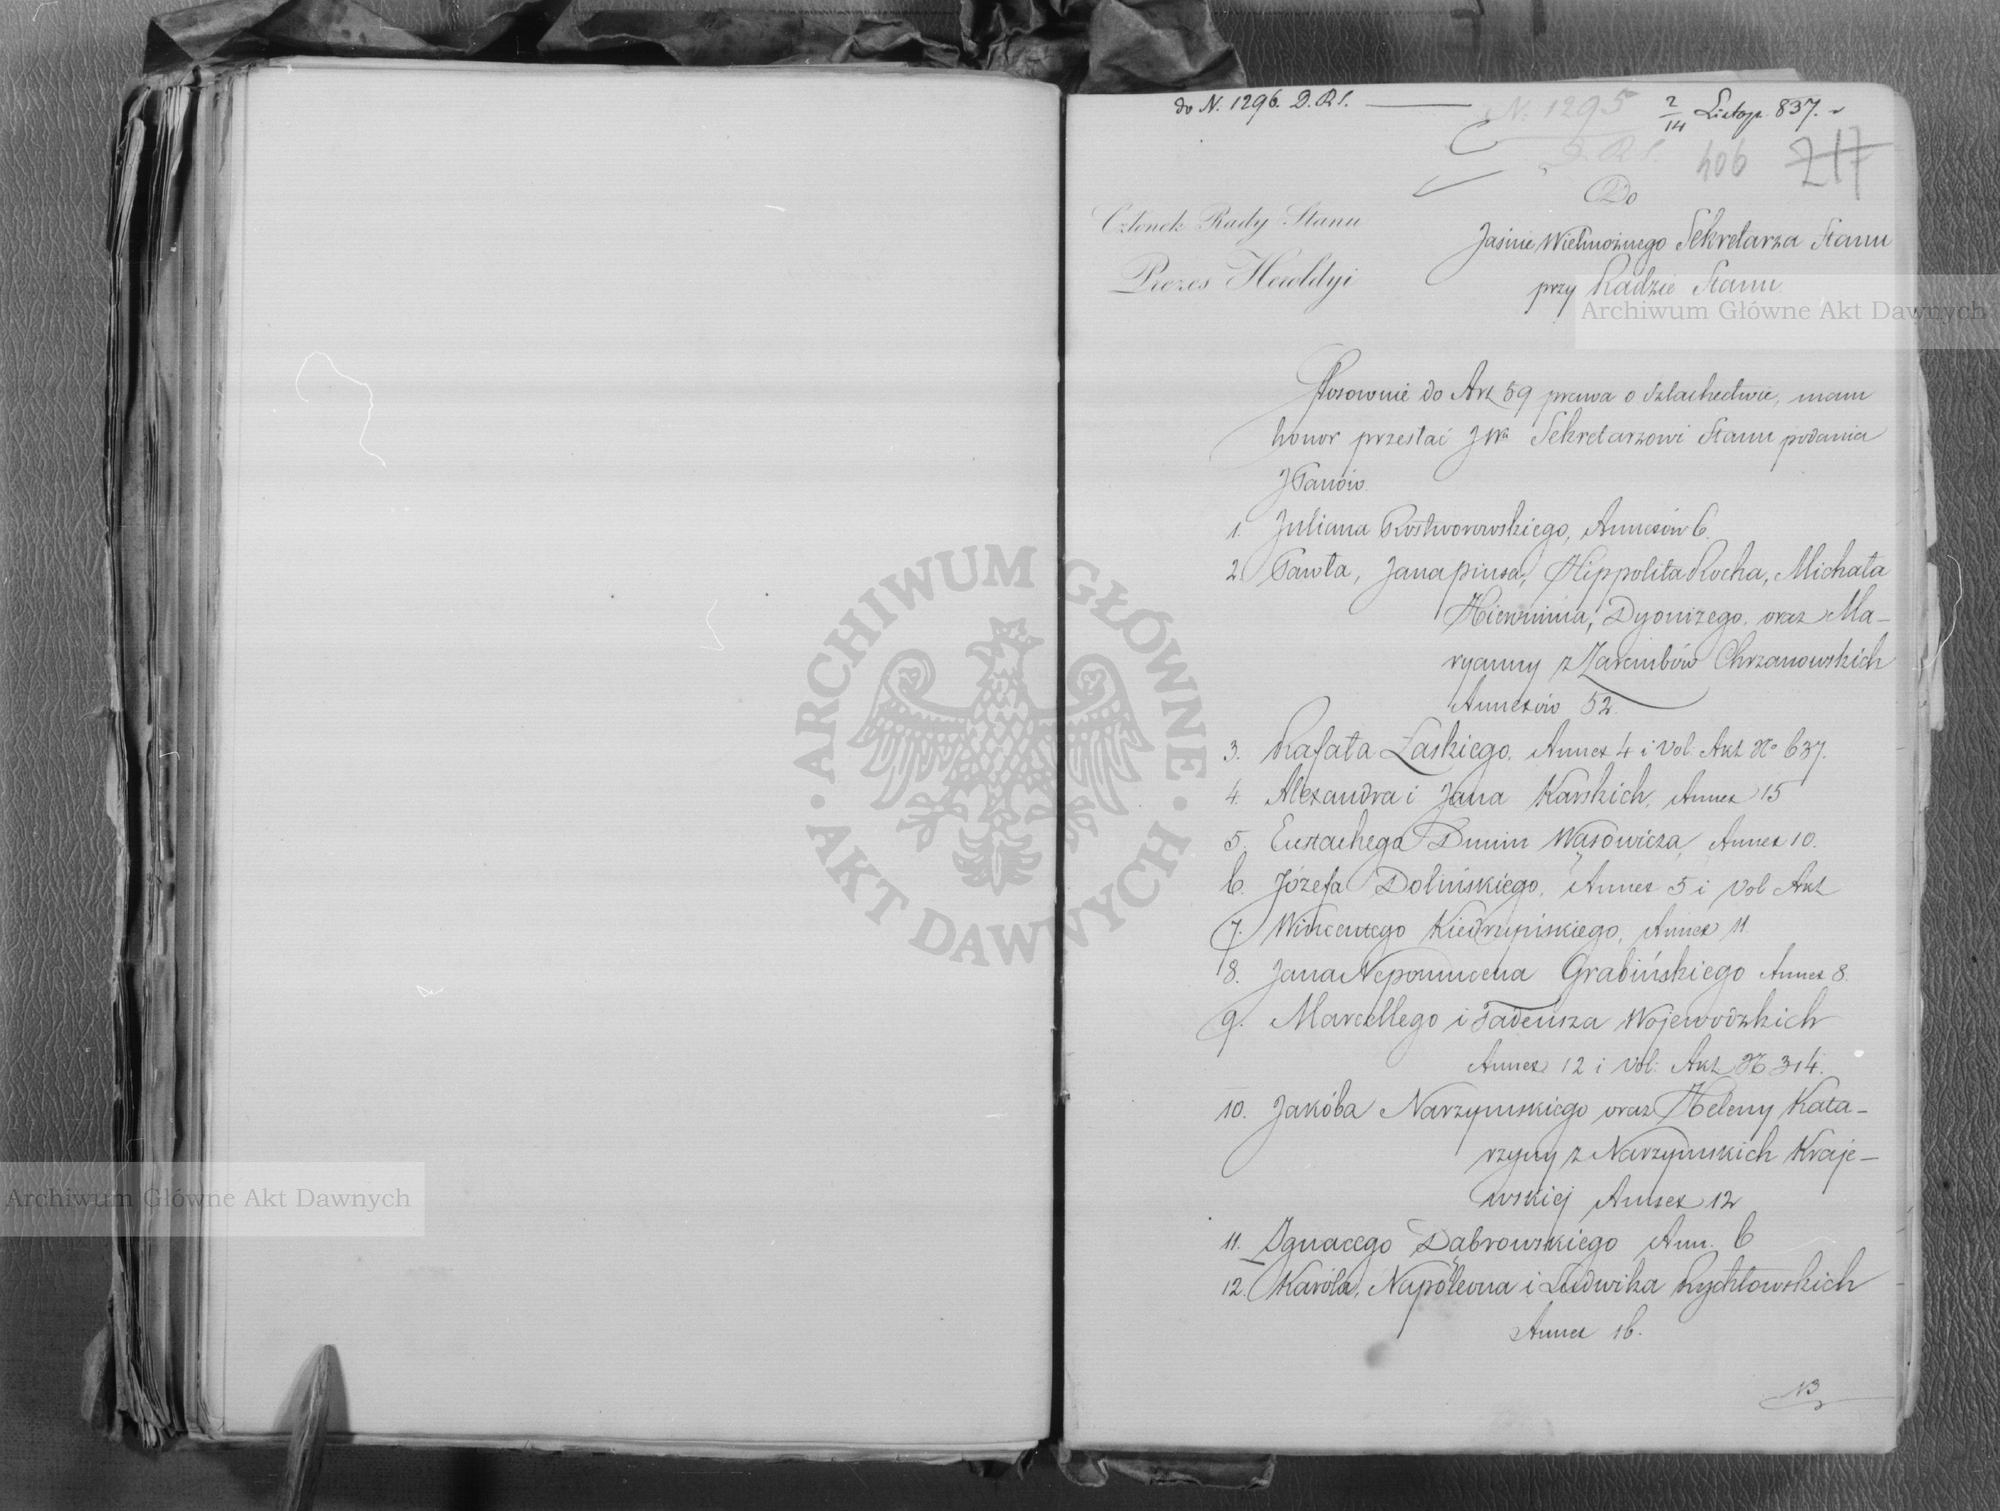 do N. 1296. D. R. S. N. 1295 2/14 Listop. 837.
D. R. S. 406 217
Do
Członek Rady Stanu
Jaśnie Wielmożnego Sekretarza Stanu
Prezes Heroldyi
przy Radzie Stanu.
Archiwum Główne Akt Dawnych
Stosownie do Art 59 prawa o szlachectwie, mam
honor przesłać JWu Sekretarzowi Stanu podania
JPanów.
1. Juliana Rostworowskiego, Annexów 6.
2. Pawła, Jana Piusa, Hippolita Rocha, Michała
Hieronima, Dyonizego. oraz Ma-
ryanny z Zarembów Chrzanowskich
Annexów 52.
3. Rafała Łaskiego. Annex 4 i Vol Akt No 637.
4. Alexandra i Jana Karskich, Annex 15
5. Eustachego Dunin Wąsowicza, Annex 10.
6. Józefa Dolińskiego, Annex 5 i Vol Akt
7. Wincentego Kiedrzyńskiego, Annex 11
8. Jana Nepomucena Grabińskiego Annex 8.
9. Marcellego i Tadeusza Wojewodzkich
Annex 12 i Vol: Akt No 314.
10. Jakóba Narzymskiego oraz Heleny Kata-
rzyny z Narzymskich Kraje-
wskiej Annex 12
11. Ignacego Dąbrowskiego Ann. 6
12. Karóla, Napoleona i Ludwika Rychłowskich
Annex 16.
13
ARCHIWUM GŁÓWNE
AKT DAWNYCH
Archiwum Główne Akt Dawnych